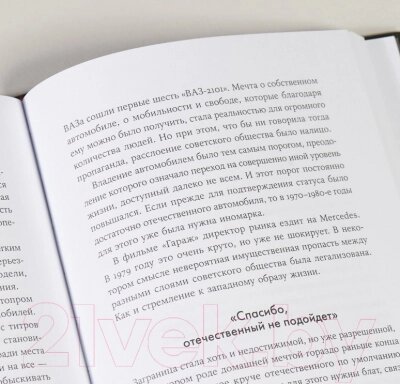 ВАЗа сошли первые шесть «ВАЗ-2101». Мечта о собственном
автомобиле, о мобильности и свободе, которые благодаря
ему можно было получить, стала реальностью для огромного
количества людей. Но при этом, что бы ни говорила тогда
пропаганда, расслоение советского общества было налицо.
Владение автомобилем было тем самым порогом, преодо-
ление которого означало переход на совершенно иной уровень
жизни, доступный далеко не всем. И этот порог постоянно
повышался. Если прежде для подтверждения статуса было
достаточно отечественного автомобиля, то в 1970–1980-е годы
для этого уже была нужна иномарка.
В фильме «Гараж» директор рынка ездит на Mercedes.
В 1979 году это очень круто, но уже не шокирует. В неко-
тором смысле невероятная имущественная пропасть между
разными слоями советского общества была легализована.
Как и стремление к западному образу жизни.
«Спасибо,
отечественный не подойдет»
Заграница стала хоть и недостижимой, но уже разрешенной,
тором роде домашней мечтой гораздо раньше конца
круче отечественного по умолчанию
этого нужны блат, связ
легким
перьез-
одели,
топром
с титров
станови-
вали места
обыскива
21vek.by